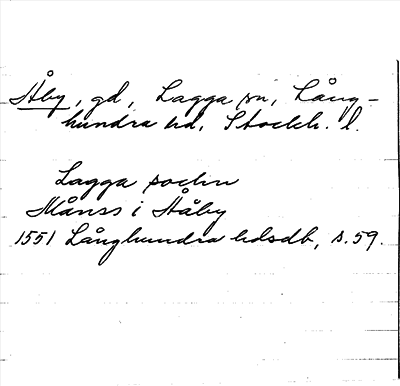 Åby, gd, Lagga sn, Lång-
hundra hd, Stockh. l.
Lagga sochn
Månss iÅåby
1551 Långhundra hdsdb, s. 59.